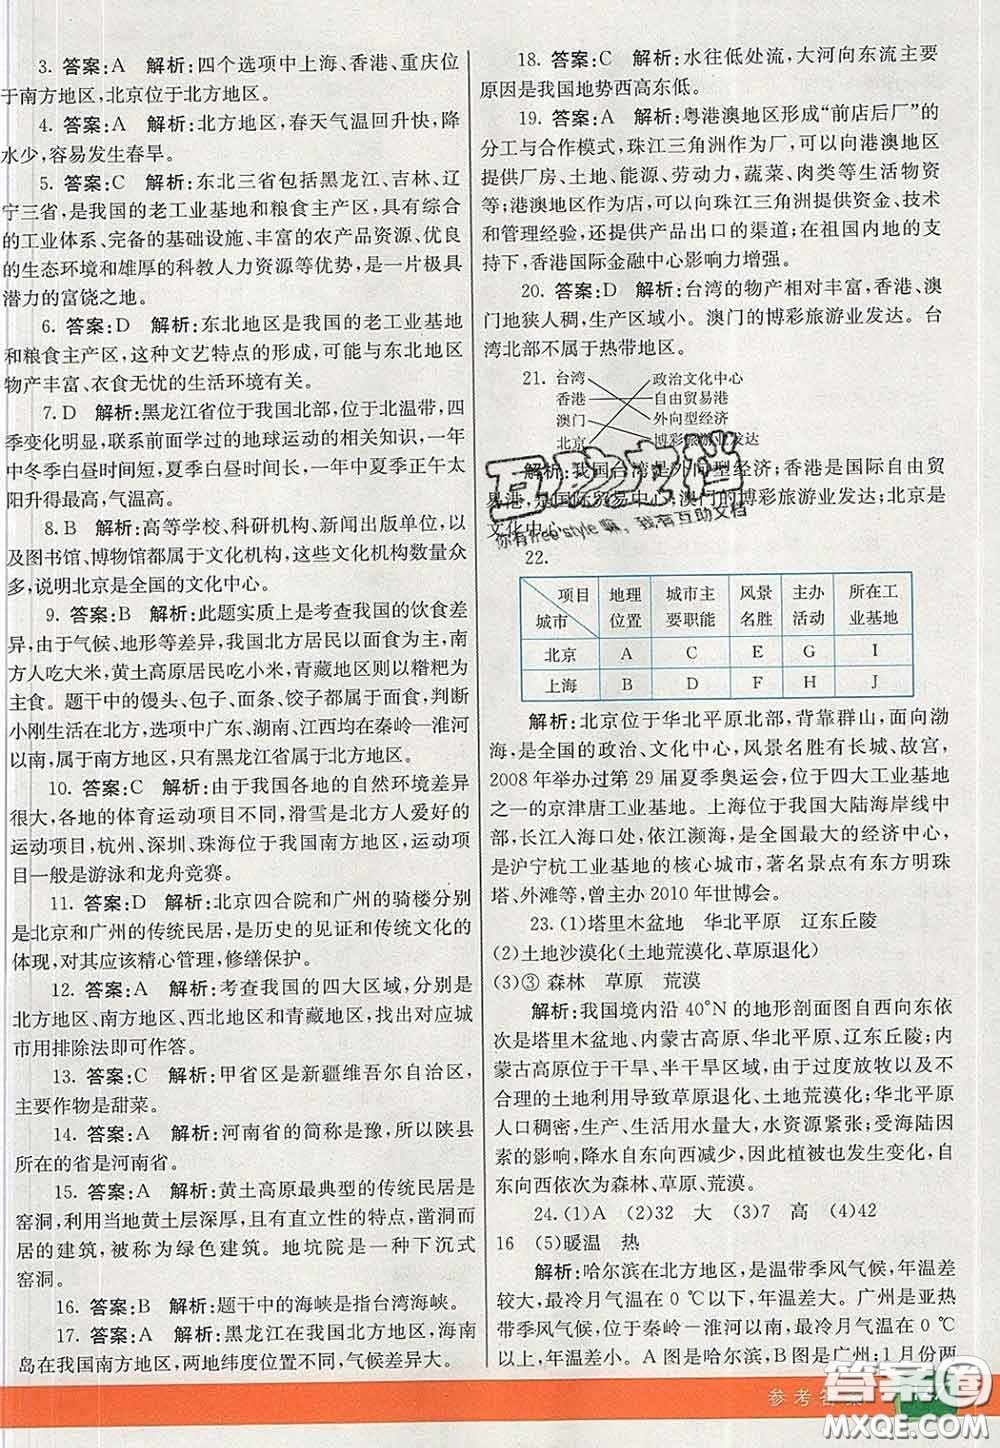 3. 答案:A　解析:四个选项中上海、香港、重庆位
于南方地区,北京位于北方地区。
4. 答案:A　解析:北方地区,春天气温回升快,降
水少,容易发生春旱。
5. 答案:C　解析:东北三省包括黑龙江、吉林、辽
宁三省,是我国的老工业基地和粮食主产区,具有综合
的工业体系、完备的基础设施、丰富的农产品资源、优良
的生态环境和雄厚的科教人力资源等优势,是一片极具
潜力的富饶之地。
6. 答案:D　解析:东北地区是我国的老工业基地
和粮食主产区,这种文艺特点的形成,可能与东北地区
物产丰富、衣食无忧的生活环境有关。
7. D　解析:黑龙江省位于我国北部,位于北温带,四
季变化明显,联系前面学过的地球运动的相关知识,一年
中冬季白昼时间短,夏季白昼时间长,一年中夏季正午太
阳升得最高,气温高。
8. B　解析:高等学校、科研机构、新闻出版单位,以
及图书馆、博物馆都属于文化机构,这些文化机构数量众
多,说明北京是全国的文化中心。
9. 答案:B　解析:此题实质上是考查我国的饮食差
异,由于气候、地形等差异,我国北方居民以面食为主,南
方人吃大米,黄土高原居民吃小米,青藏地区则以糌粑为
主食。题干中的馒头、包子、面条、饺子都是面食,判断
小刚生活在北方,选项中广东、湖南、江西均在秦岭—淮河
以南,属于南方地区,只有黑龙江省属于北方地区。
10. 答案:C　解析:由于我国各地的自然环境差异
很大,各地的体育运动项目不同,滑雪是北方人爱好的
运动项目,杭州、深圳、珠海位于我国南方地区,运动项
目一般是游泳和龙舟竞赛。
11. 答案:D　解析:北京四合院和广州的骑楼分别
是北京和广州的传统民居,是历史的见证和传统文化的
体现,对其应该精心管理,修缮保护。
12. 答案:A　解析:考查我国的四大区域,分别是
北方地区、南方地区、西北地区和青藏地区,找出对应城
市用排除法即可作答。
13. 答案:C　解析:甲省区是新疆维吾尔自治区,
主要作物是甜菜。
14. 答案:A　解析:河南省的简称是豫,所以陕县
所在的省是河南省。
15. 答案:A　解析:黄土高原最典型的传统民居是
窑洞,利用当地黄土层深厚,且有直立性的特点,凿洞而
居的建筑,被称为绿色建筑。地坑院是一种下沉式
窑洞。
16. 答案:B　解析:题干中的海峡是指台湾海峡。
17. 答案:A　解析:黑龙江在我国北方地区,海南
岛在我国南方地区,两地纬度位置不同,气候差异大。
18. 答案:C　解析:水往低处流,大河向东流主要
原因是我国地势西高东低。
19. 答案:A　解析:粤港澳地区形成“前店后厂”的
分工与合作模式,珠江三角洲作为厂,可以向港澳地区
提供厂房、土地、能源、劳动力,蔬菜、肉类等生活物资
等;港澳地区作为店,可以向珠江三角洲提供资金、技术
和管理经验,还提供产品出口的渠道;在祖国内地的支
持下,香港国际金融中心影响力增强。
20. 答案:D　解析:台湾的物产相对丰富,香港、澳
门地狭人稠,生产区域小。澳门的博彩旅游业发达。台
湾北部不属于热带地区。
21. 台湾　政治文化中心
香港　自由贸易港
澳门　外向型经济
北京　博彩旅游业发达
解析:我国台湾是外向型经济;香港是国际自由贸
易港,是国际贸易中心;澳门的博彩旅游业发达;北京是
文化中心。
互助文档
你有free style嘛,我有互助文档
22.
项目　城市　地理位置　城市主要职能　风景名胜　主办活动　所在工业基地
北京　A　C　E　G　I
上海　B　D　F　H　J
解析:北京位于华北平原北部,背靠群山,面向渤
海,是全国的政治、文化中心,风景名胜有长城、故宫,
2008年举办过第29届夏季奥运会,位于四大工业基地
之一的京津唐工业基地。上海位于我国大陆海岸线中
部,长江入海口处,依江濒海,是全国最大的经济中心,
是沪宁杭工业基地的核心城市,著名景点有东方明珠
塔、外滩等,曾主办2010年世博会。
23. (1)塔里木盆地　华北平原　辽东丘陵
(2)土地沙漠化(土地荒漠化、草原退化)
(3)③ 森林　草原　荒漠
解析:我国境内沿40°N的地形剖面图自西向东依
次是塔里木盆地、内蒙古高原、华北平原、辽东丘陵;内
蒙古高原位于干旱、半干旱区域,由于过度放牧以及不
合理的土地利用导致草原退化、土地荒漠化;华北平原
人口稠密,生产、生活用水量大,水资源紧张;受海陆因素
的影响,降水自东向西减少,因此植被也发生变化,自
东向西依次为森林、草原、荒漠。
24. (1)A　(2)32　大　(3)7　高　(4)42
16　(5)暖温　热
解析:哈尔滨在北方地区,是温带季风气候,年温差
较大,最冷月气温在0℃以下,年温差大。广州是亚热
带季风气候,位于秦岭—淮河以南,最冷月气温在0℃
以上,年温差小。A图是哈尔滨,B图是广州;1月份两
参考答案
答案圈
MXQE.COM